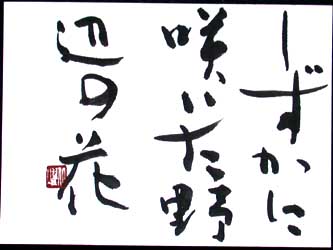 しずかに
咲いた野
辺の花